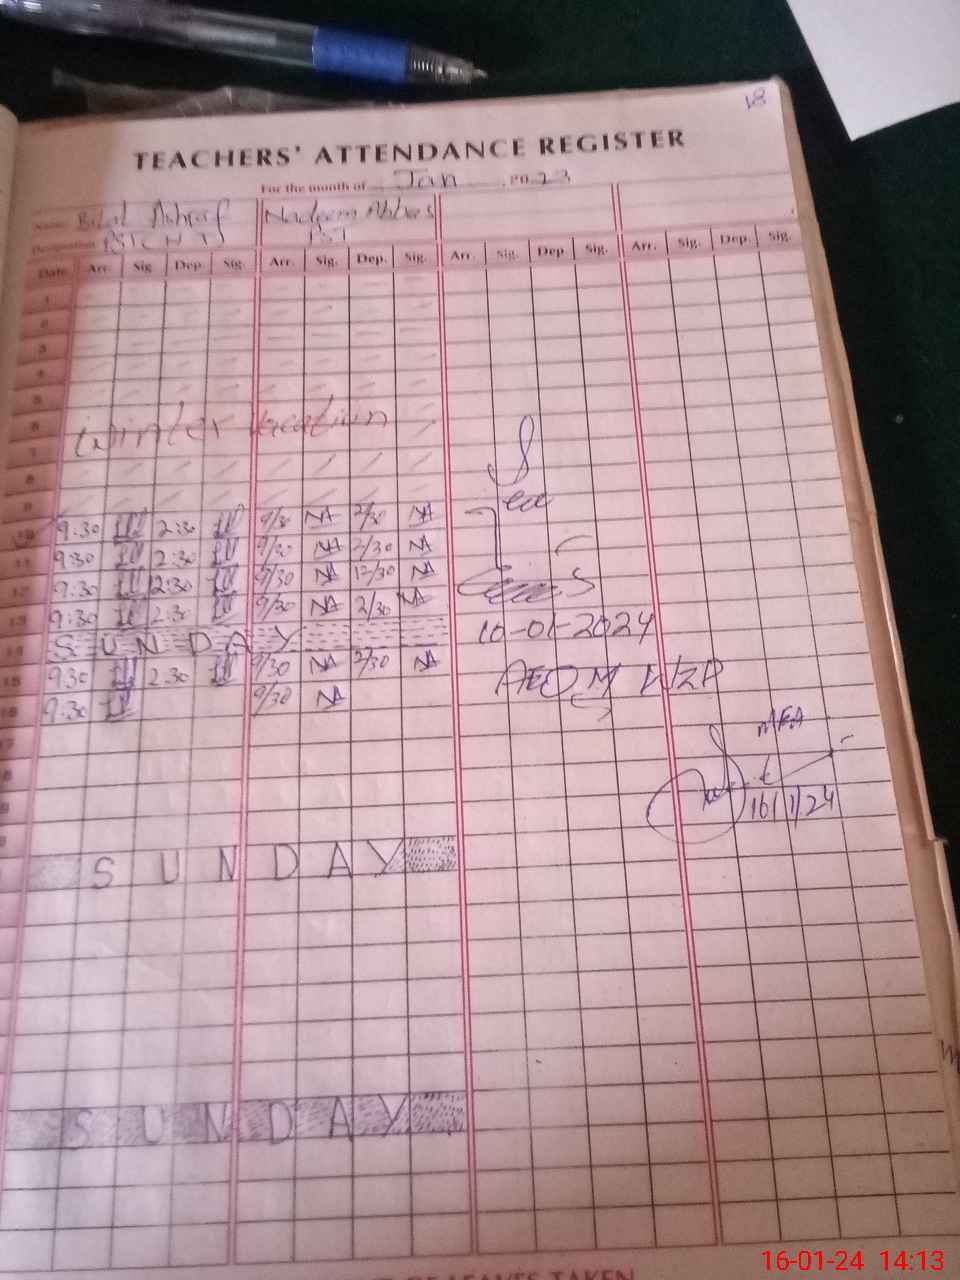 18
TEACHERS' ATTENDANCE REGISTER
For the month of Jan 2023
Name Bilal Ashraf Nadeem Abbas
Designation PST
Date Arr. Sig. Dep. Sig. Arr. Sig. Dep. Sig. Arr. Sig. Dep. Sig. Arr. Sig. Dep. Sig.
1
2
3
4
5
6 winter vacation
7
8
9
10 9:30 2:30 9/30 NA 2/30 NA
11 9:30 2:30 9/30 NA 2/30 NA
12 9:30 2:30 9/30 NA 12/30 NA
13 9:30 2:30 9/30 NA 2/30 NA
14 SUNDAY
10-01-2024
15 9:30 2:30 9/30 NA 2/30 NA
AEO M WZR
16 9:30 9/30 NA
17
MEA
18
19
16/1/24
SUNDAY
SUNDAY
OF LEAVES TAKEN
16-01-24 14:13